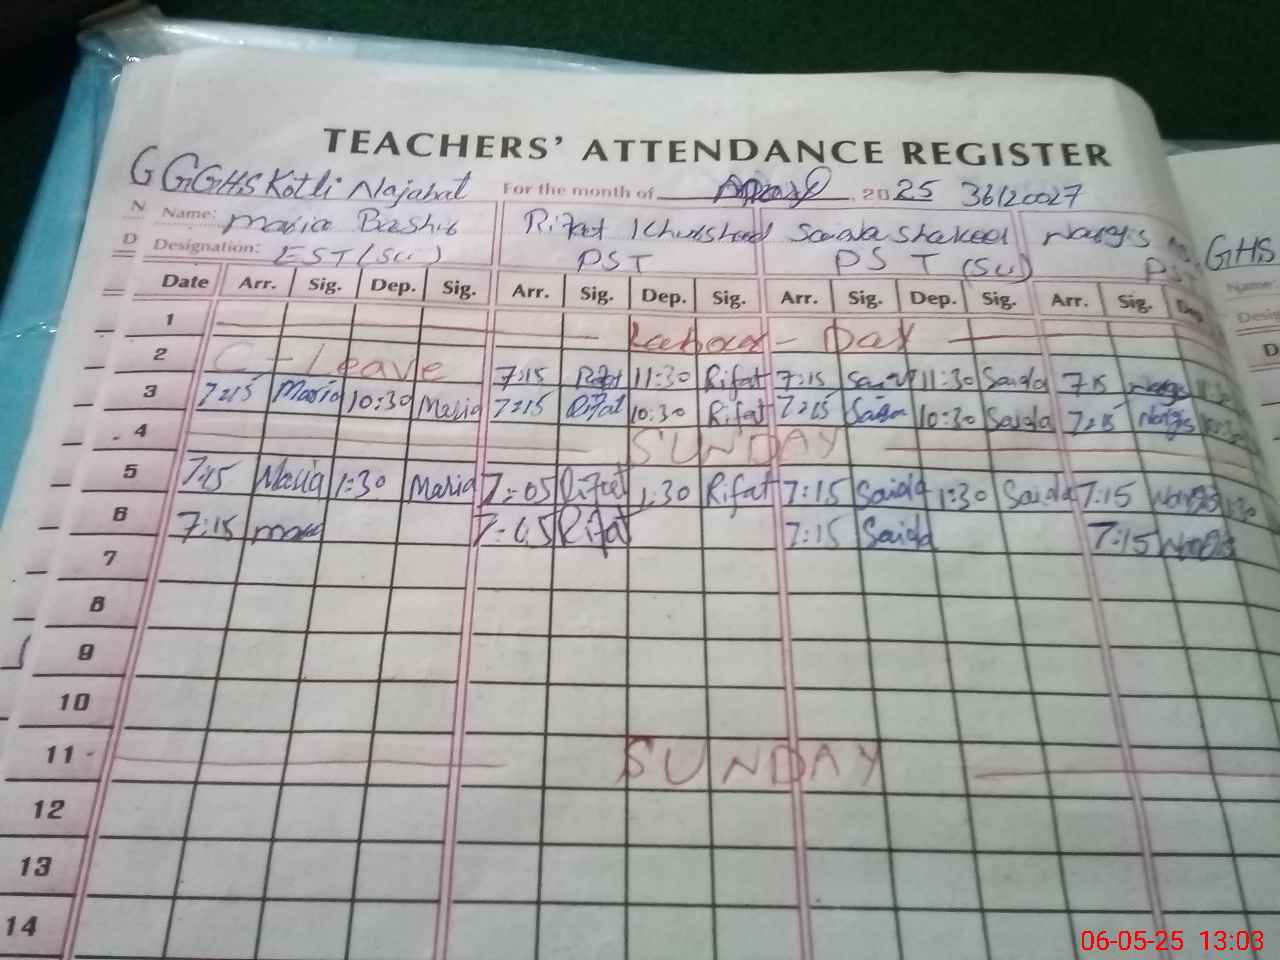 TEACHERS' ATTENDANCE REGISTER
GGGHS Kotli Najabat For the month of 2025 36120027
Name: Maria Bashir Rifat Khursheed Saida Shakeel Nargis
Designation: EST (Sci) PST PST (Su)
Date Arr. Sig. Dep. Sig. Arr. Sig. Dep. Sig. Arr. Sig. Dep. Sig. Arr. Sig. Dep.
1 Labour Day
2 C-Leave 7:15 Rifat 11:30 Rifat 7:15 Saida 11:30 Saida 7:15 Nargis
3 7:15 Maria 10:30 Maria 7:15 Rifat 10:30 Rifat 7:15 Saida 10:30 Saida 7:15 Nargis
4 SUNDAY
5 7:15 Maria 1:30 Maria 7:05 Rifat 1:30 Rifat 7:15 Saida 1:30 Saida 7:15 Nargis 1:30
6 7:15 Maria 7:05 Rifat 7:15 Saida 7:15 Nargis
7
8
9
10
11 SUNDAY
12
13
14
GHS
Name:
D
06-05-25 13:03